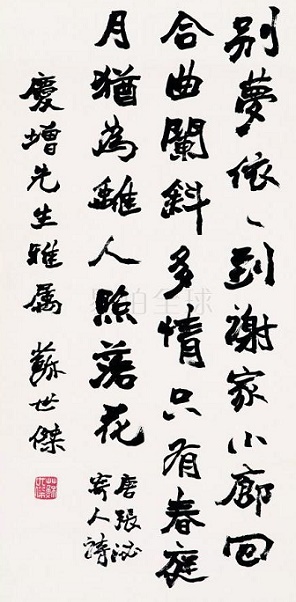 别夢依〻到謝家小廊回
合曲闌斜多情只有春庭
月猶為離人照落花
唐張泌
寄人詩
慶增先生雅属 蘇世傑